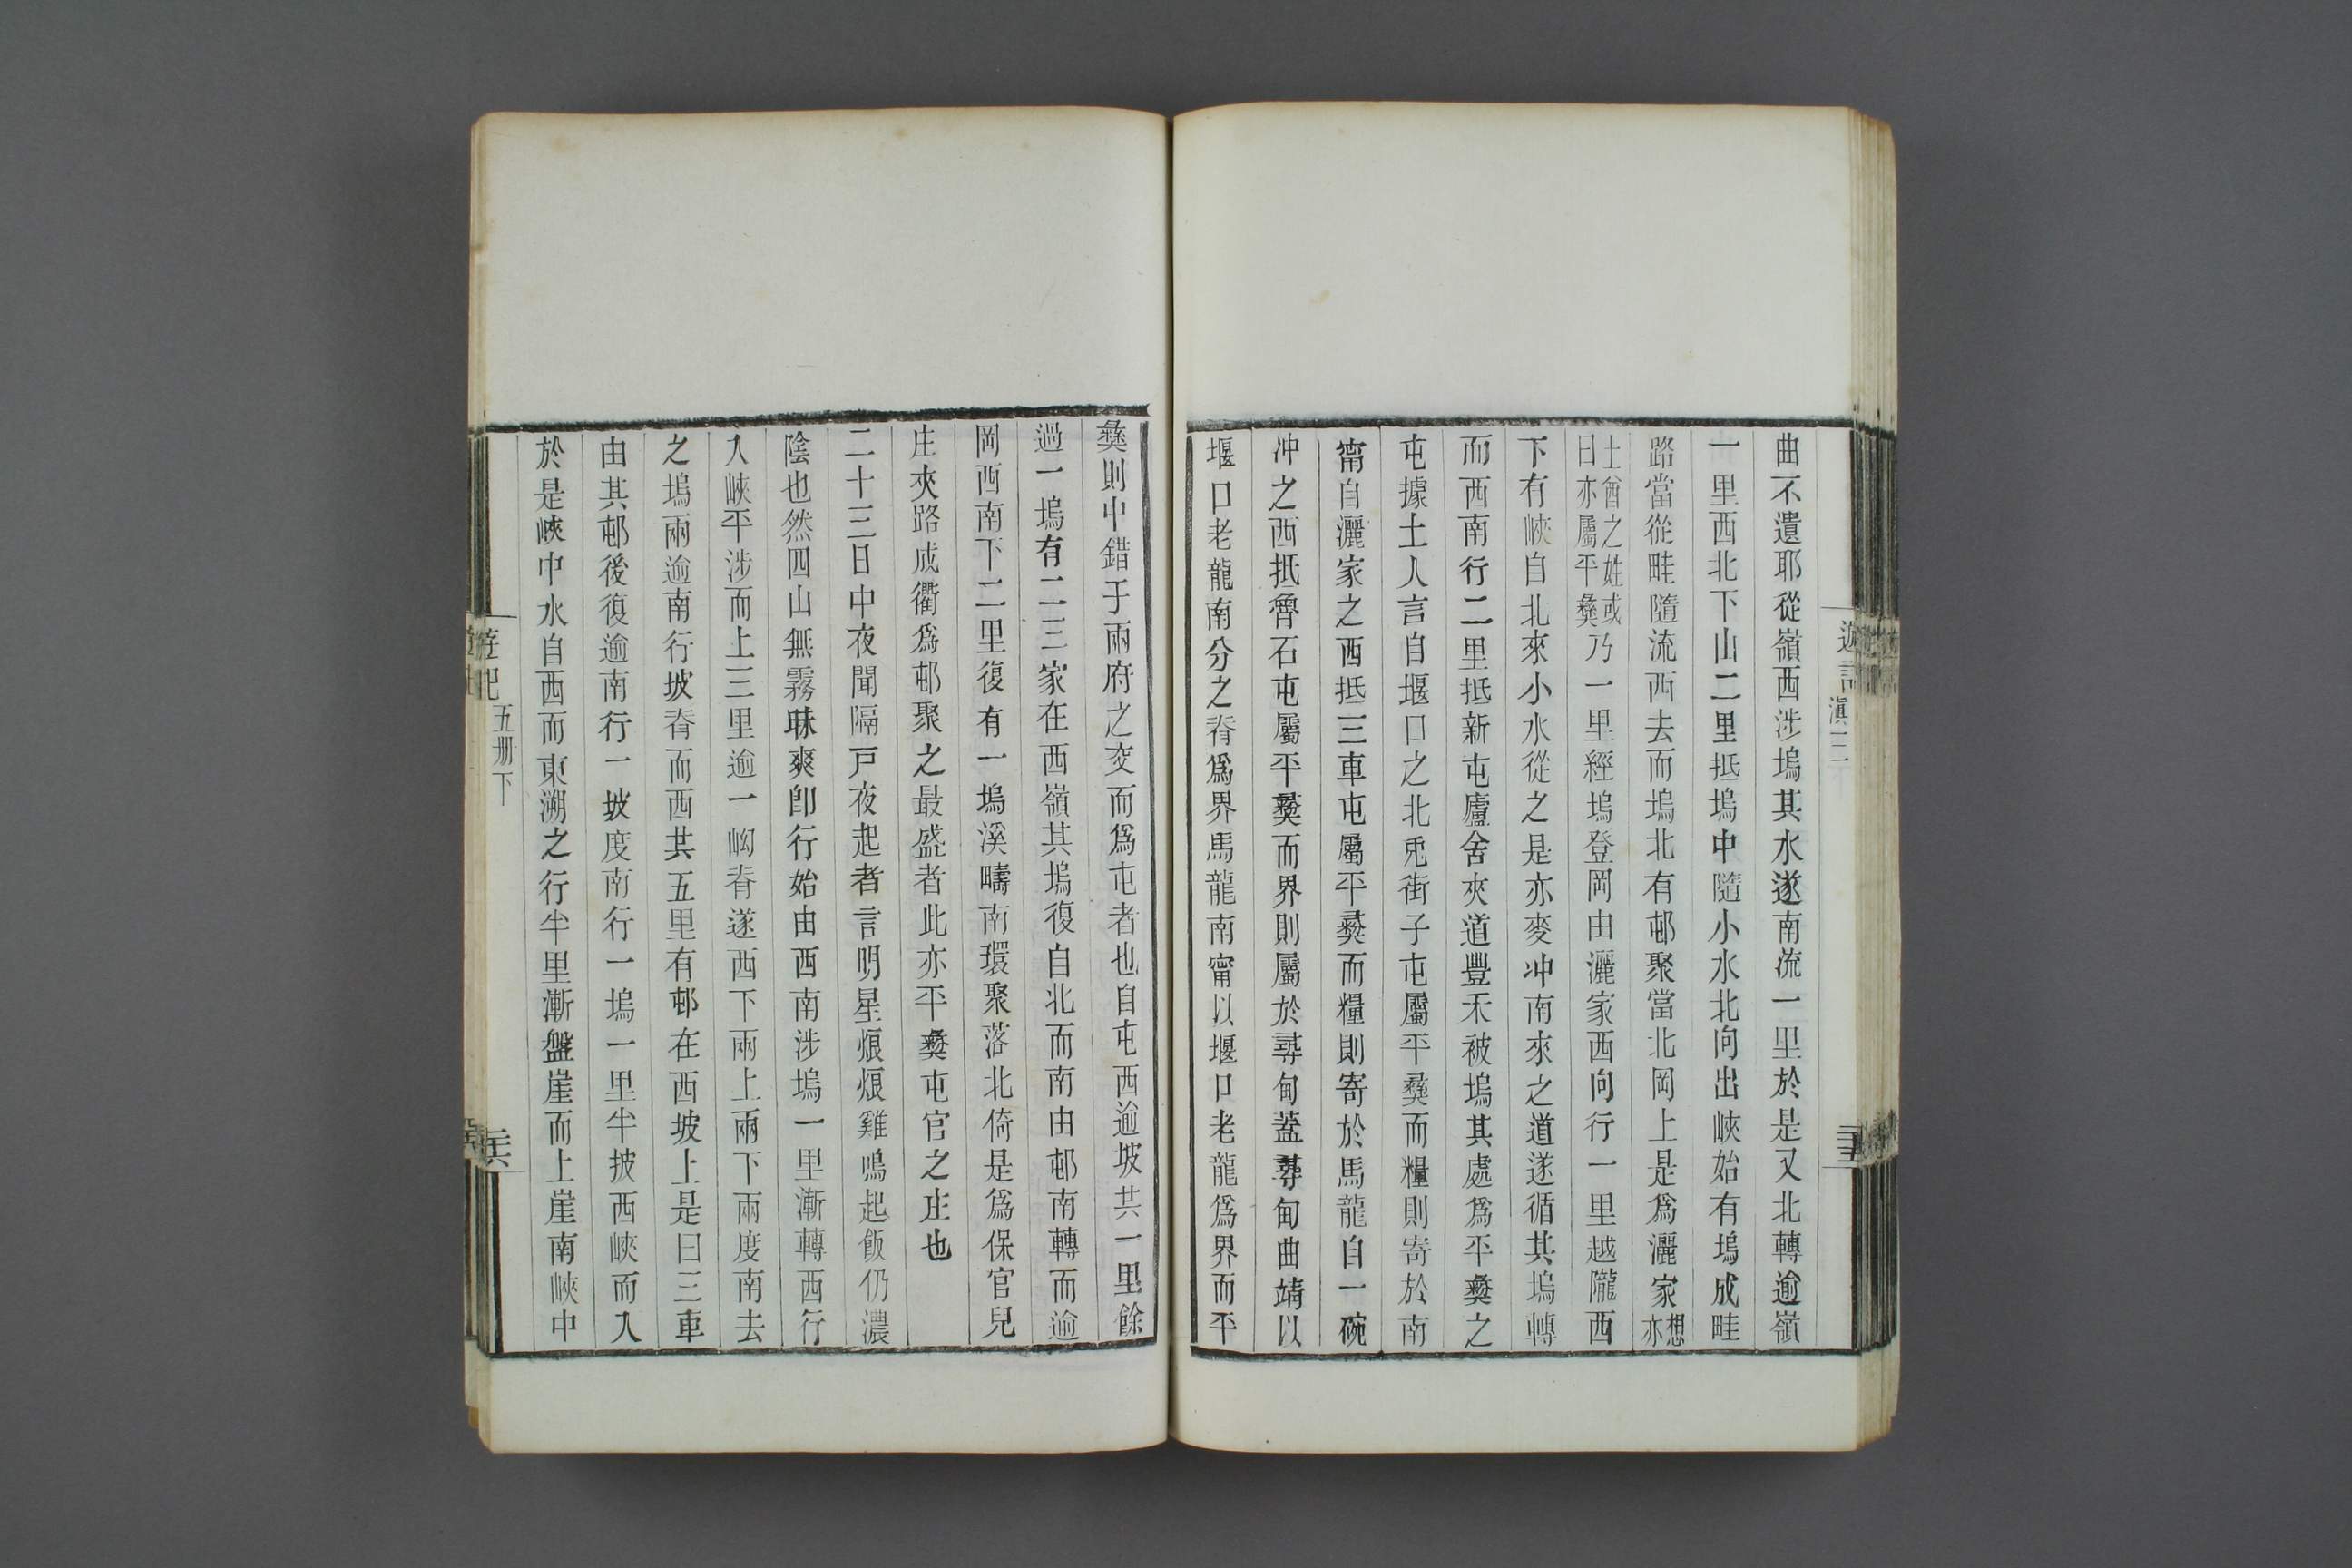 遊記 滇三
曲不遺耶從嶺西涉塢其水遂南流一里於是又北轉逾嶺
一里西北下山二里抵塢中隨小水北向出峽始有塢成畦
路當從畦隨流西去而塢北有邨聚當北岡上是爲灑家想亦
土酋之姓或曰亦屬平彝乃一里經塢登岡由灑家西向行一里越隴西
下有峽自北來小水從之是亦麥冲南來之道遂循其塢轉
而西南行二里抵新屯廬舍夾道豐禾被塢其處爲平彝之
屯據土人言自堰口之北兎街子屯屬平彝而糧則寄於南
甯自灑家之西抵三車屯屬平彝而糧則寄於馬龍自一碗
冲之西抵魯石屯屬平彝而界則屬於尋甸蓋尋甸曲靖以
堰口老龍南分之脊爲界馬龍南甯以堰口老龍爲界而平
彝則中錯于兩府之交而爲屯者也自屯西逾坡共一里餘
過一塢有二三家在西嶺其塢復自北而南由邨南轉而逾
岡西南下二里復有一塢溪疇南環聚落北倚是爲保官兒
庄夾路成衢爲邨聚之最盛者此亦平彝屯官之庄也
二十三日中夜聞隔戸夜起者言明星烺烺雞鳴起飯仍濃
陰也然四山無霧昧爽卽行始由西南涉塢一里漸轉西行
入峽平涉而上三里逾一岰脊遂西下兩上兩下兩度南去
之塢兩逾南行坡脊而西共五里有邨在西坡上是曰三車
由其邨後復逾南行一坡度南行一塢一里半披西峽而入
於是峽中水自西而東溯之行半里漸盤崖而上崖南峽中
遊記 五册下 三六